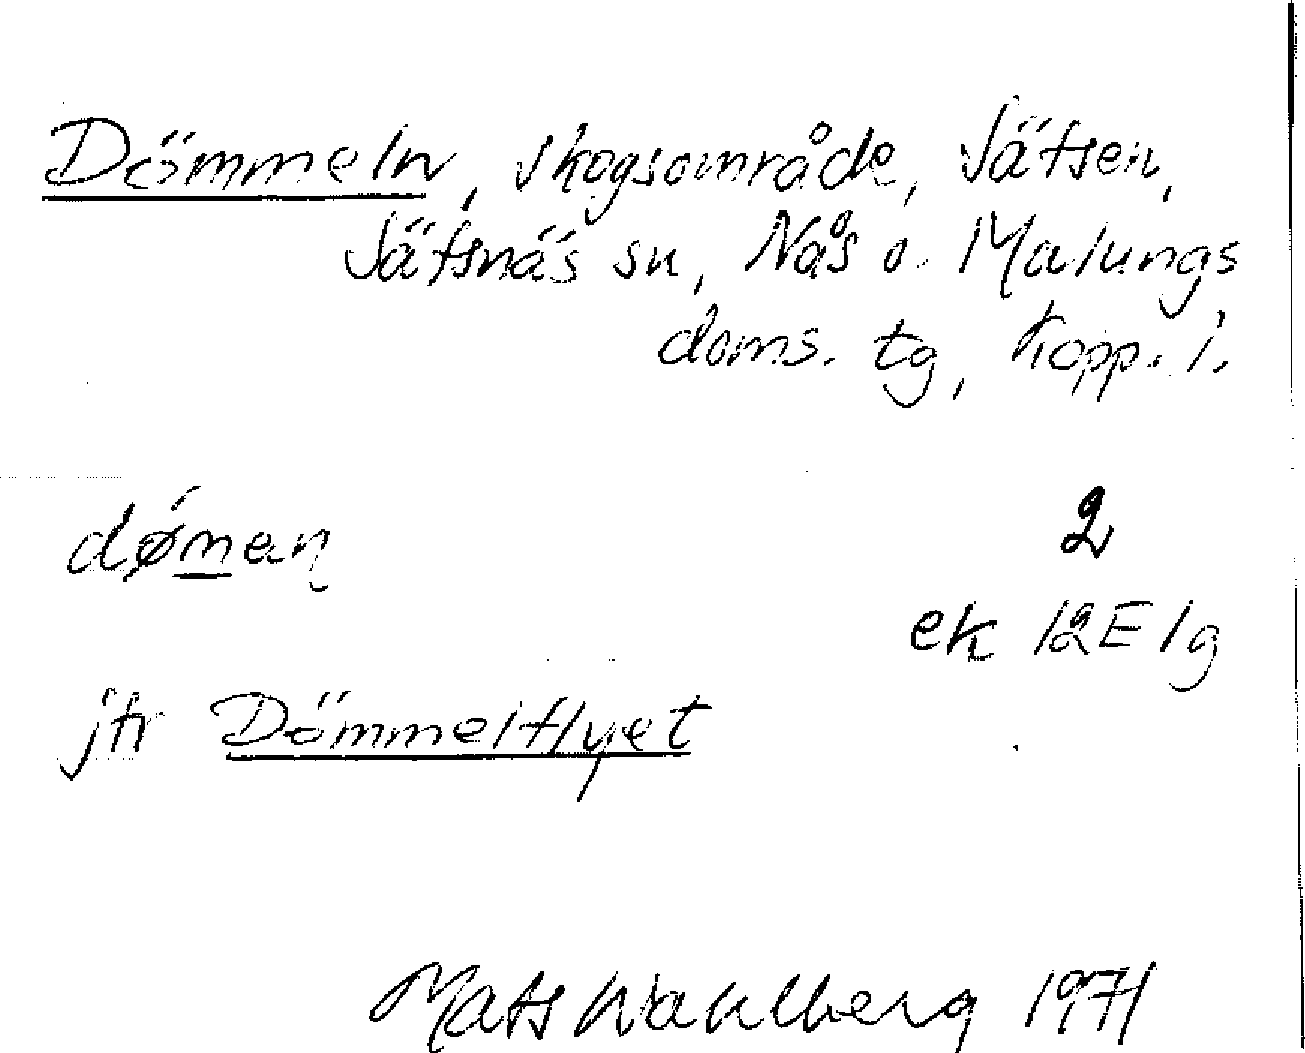 Dömmeln, skogsområde, Sätsen,
Sätsnäs sn, Nås o. Malungs
doms. tg, Kopp. l.
dǿmaṇ 2
ek 12E1g
jfr Dömmelflyet
Mats Wahlberg 1971